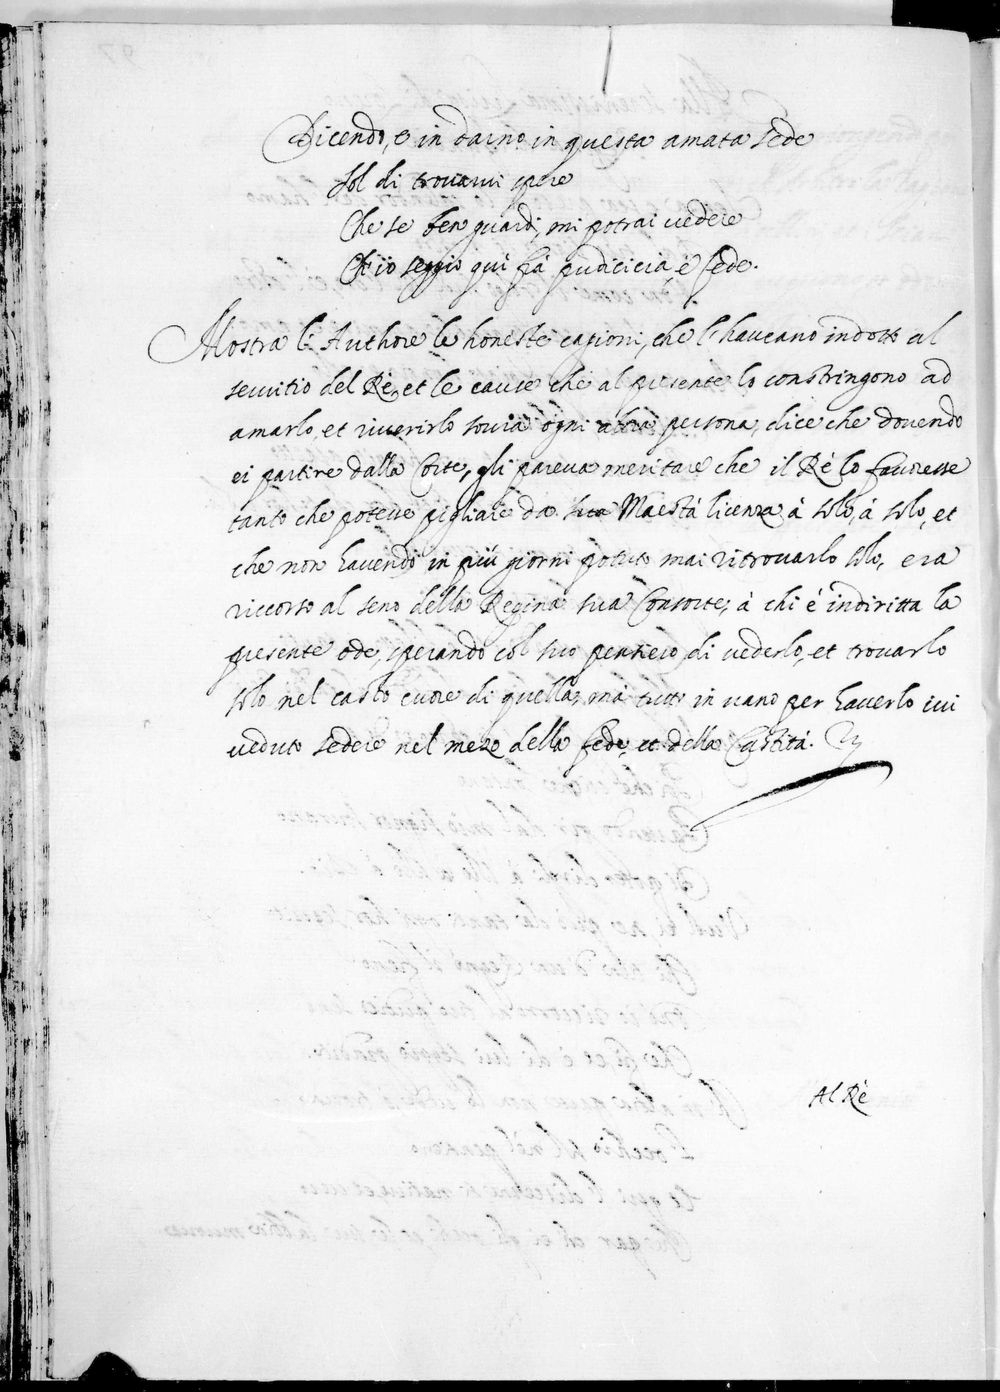 Dicendo, è in darno in questa amata sede
Sol di trovarmi spere
Che se ben guardi, mi potrai vedere
Ch'io seggio quì frà pudicicia, è fede.
Mostra l'Authore le honeste cagioni, che l'haveano indotto al
servitio del Rè, et le cause che al presente lo constringono ad
amarlo, et riverirlo sovra ogni altra persona, dice che dovendo
ei partire dalla Corte, gli pareva meritare che il Rè lo favoresse
tanto che potesse pigliare da sua Maestà licenza à solo, à solo, et
che non havendo in più giorni potuto mai ritrovarlo solo, era
riccorso al seno della Regina sua Consorte, à chi è indiritta la
presente ode, sperando col suo pensiero di vederlo, et trovarlo
solo nel casto cuore di quella, mà tutto in vano per haverlo ivi
veduto sedere nel mezo della fede, et della Castità.
Al Rè